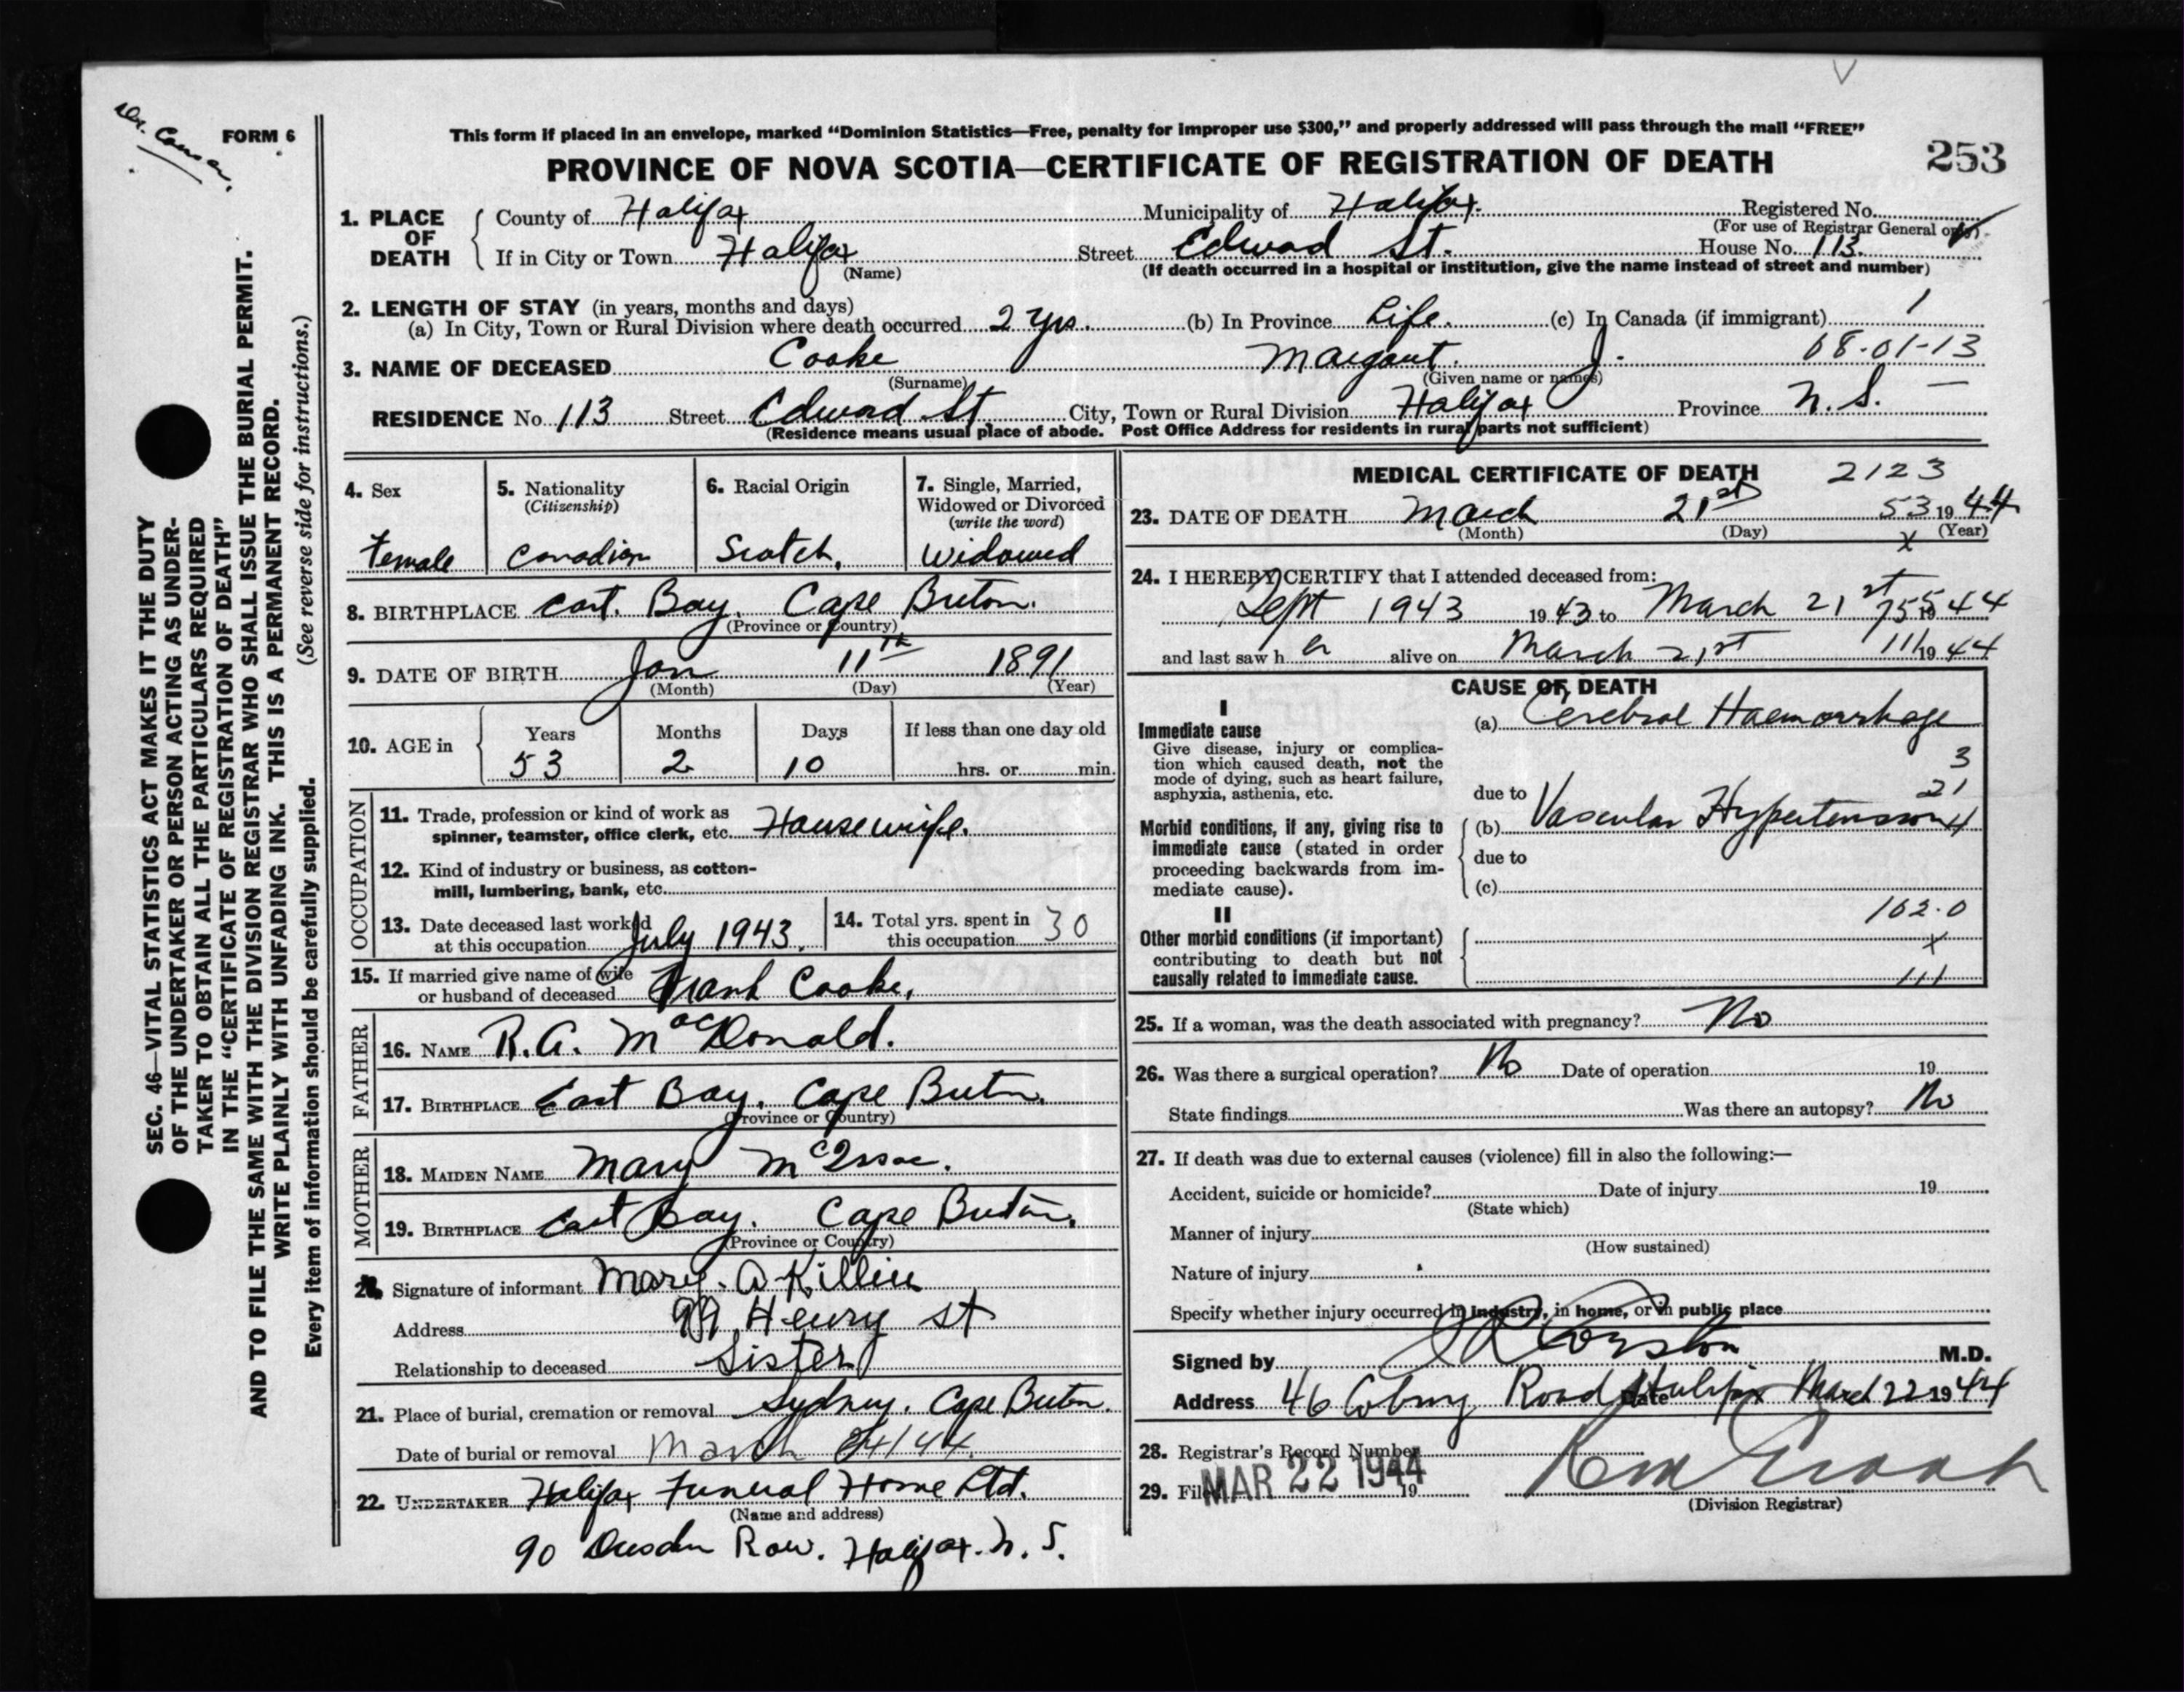 Dr. Conson.
FORM 6
This form if placed in an envelope, marked “Dominion Statistics—Free, penalty for improper use $300,” and properly addressed will pass through the mail “FREE”
PROVINCE OF NOVA SCOTIA—CERTIFICATE OF REGISTRATION OF DEATH
253
1. PLACE OF DEATH
County of Halifax Municipality of Halifax. Registered No.
(For use of Registrar General only).
If in City or Town Halifax Street Edward St. House No. 113.
(Name) (If death occurred in a hospital or institution, give the name instead of street and number)
2. LENGTH OF STAY (in years, months and days)
(a) In City, Town or Rural Division where death occurred 2 yrs. (b) In Province Life. (c) In Canada (if immigrant) 1
3. NAME OF DECEASED Cooke Margaret. J. 08-01-13
(Surname) (Given name or names)
RESIDENCE No. 113 Street Edward St City, Town or Rural Division Halifax Province N. S. —
(Residence means usual place of abode. Post Office Address for residents in rural parts not sufficient)
SEC. 46—VITAL STATISTICS ACT MAKES IT THE DUTY
OF THE UNDERTAKER OR PERSON ACTING AS UNDER-
TAKER TO OBTAIN ALL THE PARTICULARS REQUIRED
IN THE “CERTIFICATE OF REGISTRATION OF DEATH”
AND TO FILE THE SAME WITH THE DIVISION REGISTRAR WHO SHALL ISSUE THE BURIAL PERMIT.
WRITE PLAINLY WITH UNFADING INK. THIS IS A PERMANENT RECORD.
Every item of information should be carefully supplied. (See reverse side for instructions.)
4. Sex
Female
5. Nationality
(Citizenship)
Canadian
6. Racial Origin
Scotch.
7. Single, Married,
Widowed or Divorced
(write the word)
Widowed
8. BIRTHPLACE East. Bay. Cape Breton.
(Province or Country)
9. DATE OF BIRTH Jan 11th 1891
(Month) (Day) (Year)
10. AGE in
Years Months Days If less than one day old
53 2 10 hrs. or min.
OCCUPATION
11. Trade, profession or kind of work as
spinner, teamster, office clerk, etc. Housewife.
12. Kind of industry or business, as cotton-
mill, lumbering, bank, etc.
13. Date deceased last worked
at this occupation July 1943.
14. Total yrs. spent in
this occupation 30
15. If married give name of wife
or husband of deceased Frank Cooke.
FATHER
16. NAME R.A. MacDonald.
17. BIRTHPLACE East Bay. Cape Breton.
(Province or Country)
MOTHER
18. MAIDEN NAME Mary McIssac.
19. BIRTHPLACE East Bay. Cape Breton.
(Province or Country)
20. Signature of informant Mary. A Killin
Address 99 Henry St
Relationship to deceased Sister
21. Place of burial, cremation or removal Sydney. Cape Breton.
Date of burial or removal March 24/44.
22. UNDERTAKER Halifax Funeral Home Ltd.
(Name and address)
90 Dresden Row. Halifax. N. S.
MEDICAL CERTIFICATE OF DEATH 2123
23. DATE OF DEATH March 21st 53 1944
(Month) (Day) (Year)
x
24. I HEREBY CERTIFY that I attended deceased from:
Sept 1943 1943 to March 21st 755 1944
and last saw her alive on March 21st 111 1944
CAUSE OF DEATH
I
Immediate cause
Give disease, injury or complica-
tion which caused death, not the
mode of dying, such as heart failure,
asphyxia, asthenia, etc.
(a) Cerebral Haemorrhage
3
due to 21
Morbid conditions, if any, giving rise to
immediate cause (stated in order
proceeding backwards from im-
mediate cause).
(b) Vascular Hypertension 4
due to
(c)
162.0
II
Other morbid conditions (if important)
contributing to death but not
causally related to immediate cause.
x
111
25. If a woman, was the death associated with pregnancy? No
26. Was there a surgical operation? No Date of operation 19
State findings Was there an autopsy? No
27. If death was due to external causes (violence) fill in also the following:—
Accident, suicide or homicide? Date of injury 19
(State which)
Manner of injury
(How sustained)
Nature of injury
Specify whether injury occurred in industry, in home, or in public place
Signed by Corston M.D.
Address 46 Coburg Road Halifax Date March 22 1944
28. Registrar's Record Number
29. Filed MAR 22 1944 19
(Division Registrar)